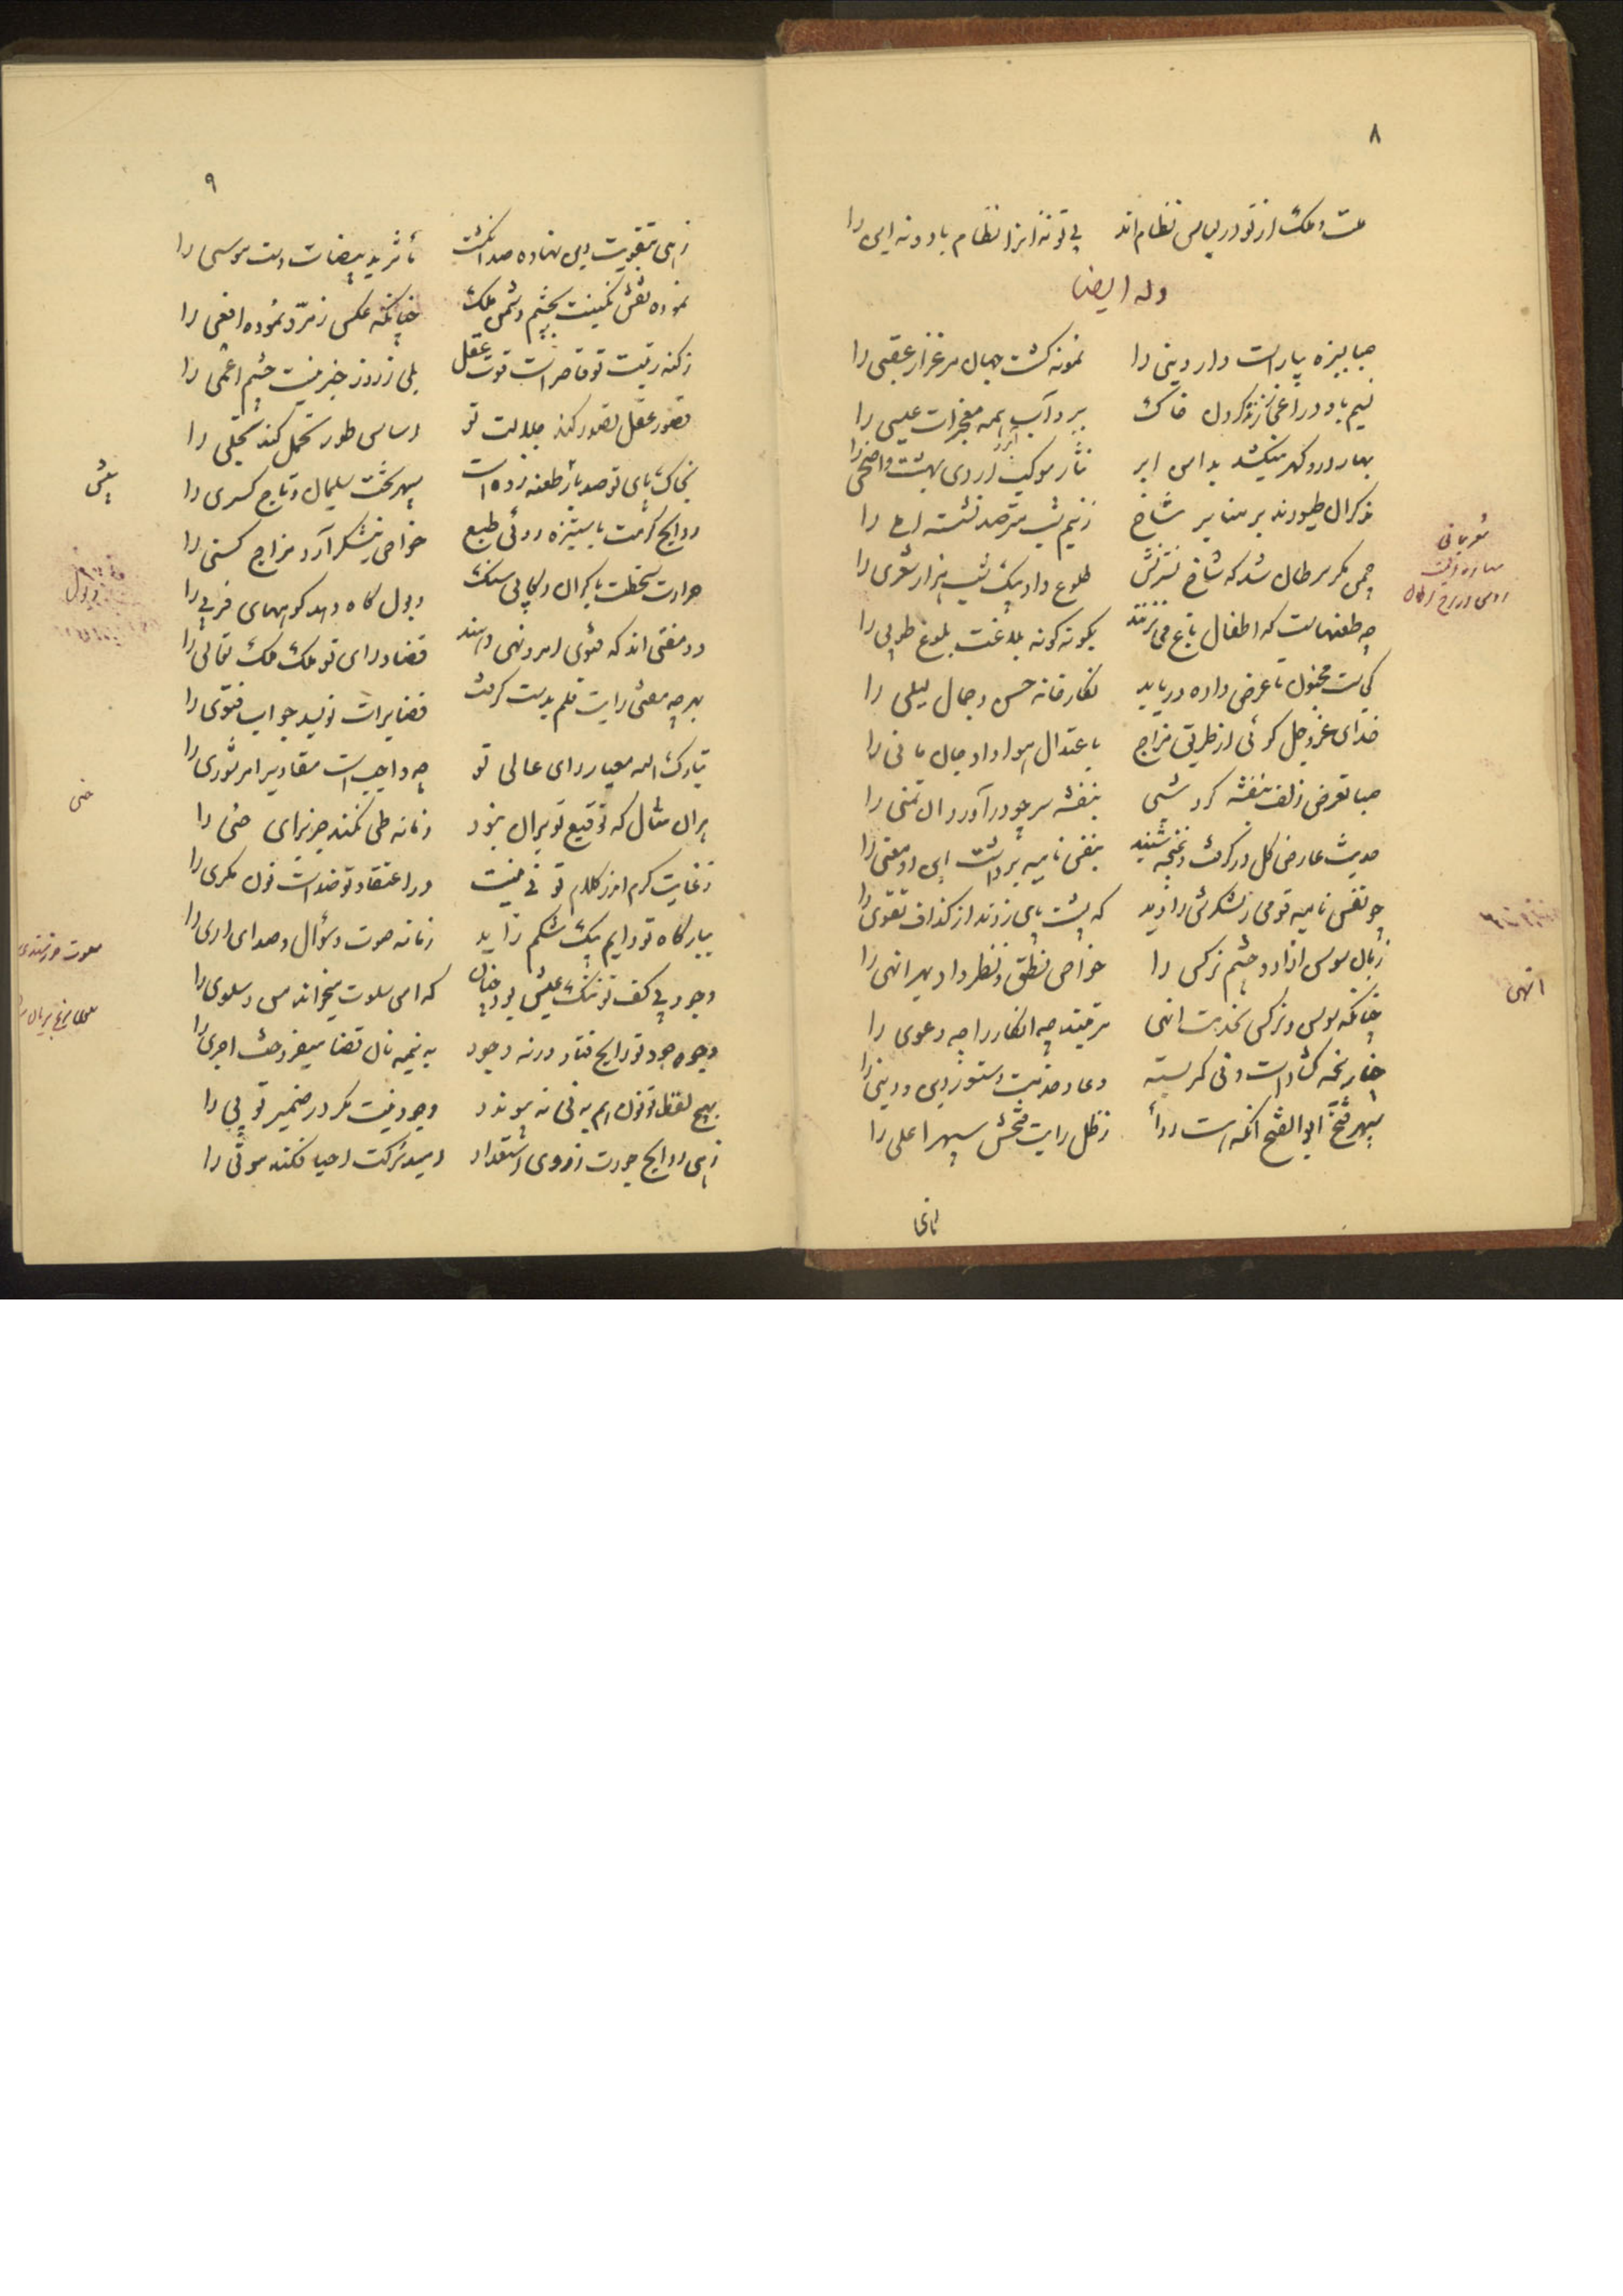 ۸
ملت و ملک از تو در لباس نظام‌اند بی تو نه انرا نظام باد و نه این را
وله ایضا
صبا بسبزه بیاراست دار دینی را نمونه گشت جهان مرغزار عقبی را
نسیم باد در اعجاز زنده کردن خاک ببرد آب همه معجزات عیسی را
بهار در و گهر میکشد بدامن ابر نثار موکب اردی بهشت و اضحی را
مذکران طیورند بر منابر شاخ ز نیم شب مترصد نشسته املی را
چمن مگر سرطان شد که شاخ نسترنش طلوع داد بیک شب هزار شعری را
چه طعنهاست که اطفال باغ می نزنند بگونه گونه بلاغت بلوغ طوبی را
کجاست مجنون تا عرض داده دریابد نگارخانه حسن و جمال لیلی را
خدای عز و جل گوئی از طریق مزاج باعتدال هوا داد جان مانی را
صبا تعرض زلف بنفشه کرد شبی بنفشه سر چو درآورد آن تمنی را
حدیث عارض گل درگرفت و غنچه شنید بنفس نامیه برداشت این دو معنی را
چو نفس نامیه قومی ز لشکرش را دید که پشت پای زدند از گزاف تقوی را
زبان سوسن ازاد و چشم نرگس را خواص نطق و نظر داد بهر انهی را
چنانکه سوسن و نرگس بخدمت انهی مرتبند چه انکار را چه دعوی را
چنار پنجه گشاد است و نی کمر بسته دعا و خدمت دستور دین و دینی را
سپهر فتح ابوالفتح آنکه هست ردأ ز ظل رایت فتحش سپهر اعلی را
انهی
۹
زهی بتقویت دین نهاده صد انگشت تأثر ید بیضات دست موسی را
نموده نقش نگینت بچشم دشمن ملک چنانکه عکس زمرّد نموده افعی را
ز کنه رتبت تو قاصر است قوت عقل بلی ز روز خبر نیست چشم اعمی را
قصور عقل تصور کند جلالت تو اساس طور تحمل کند تجلی را
بخاک پای تو صد بار طعنه زده است سپهر تخت سلیمان و تاج کسری را
روایح کرمت با ستیزه روئی طبع خواص نیشکر آرد مزاج کسنی را
حرارت سخطت با گران رکابی سنگ ذبول کاه دهد کوههای فربی را
دو مفتی‌اند که فتوی امر و نهی دهند قضا و رای تو ملک ملک تعالی را
بهر چه مفتی رایت قلم بدست گرفت قضا برات نویسد جواب فتوی را
تبارک الله معیار رای عالی تو چه واجب است مقادیر امر شوری را
بران مثال که توقیع تو بران نبود زمانه طی نکند جز برای حنی را
ز غایت کرم اندر کلام تو نی نیست در اعتقاد تو ضد است نون مگر ی را
ببارگاه تو دایم بیک شکم زاید زمانه صوت و سؤال و صدای اری را
وجود بی کف تو تنگ عیش بود چنان که امن سلوت میخواند من و سلوی را
وجوه جود تو رایج فتاد ورنه وجود به نیمه نان قضا میفروخت اجری را
بهیچ لفظ تو نون هم به نی نه پیوندد وجود نیست مگر در ضمیر تو نی را
زهی روایح جودت ز روی استعداد امید شرکت احیا فکنده موتی را
حنی